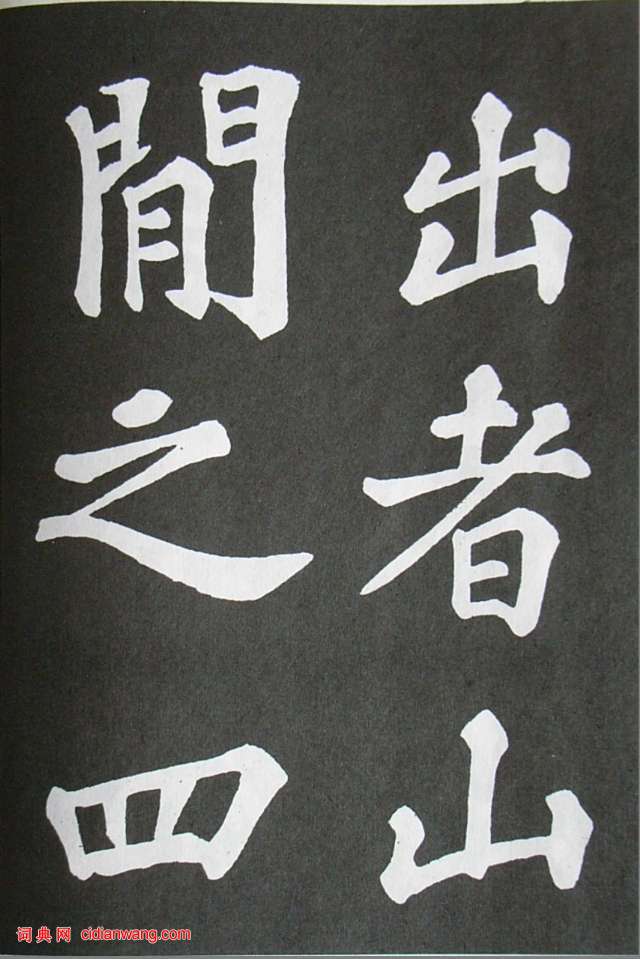 出者山
閒之四
词典网 cidianwang.com